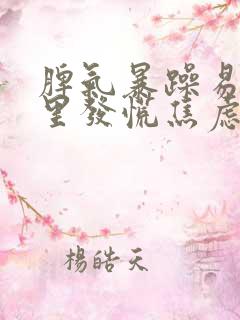 脾氣暴躁易
里發慌焦慮
楊皓天